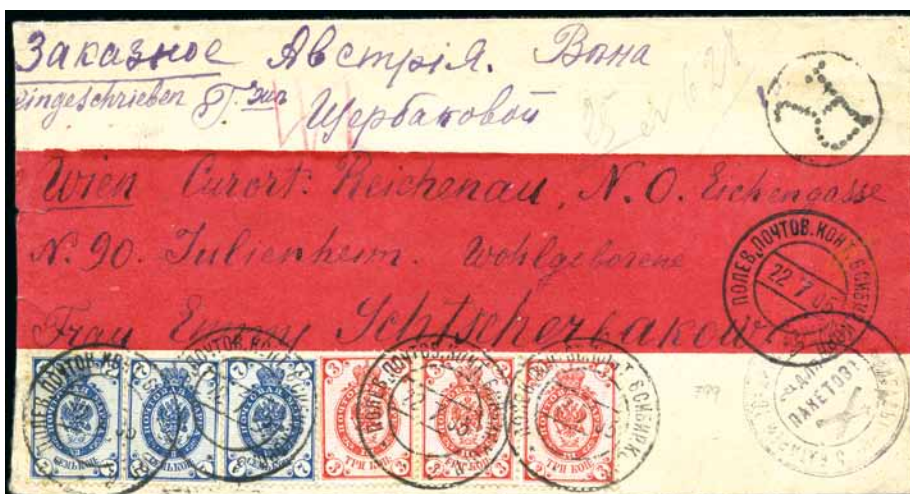 Заказное Австрія. Вѣна
Eingeschrieben Г-жѣ
Щербаковой
Wien Curort: Reichenau, N.O. Eichengasse
N. 90. Julienheim. Wohlgeborene
Frau Emmy Schtscherbakow
ПОЛЕВ.ПОЧТОВ.КОНТ. 6 СИБИРК.
22 7 05
ПАКЕТОВЪ
799
7 7 7 3 3 3
СЕМЬ КОП. СЕМЬ КОП. СЕМЬ КОП. ТРИ КОП. ТРИ КОП. ТРИ КОП.